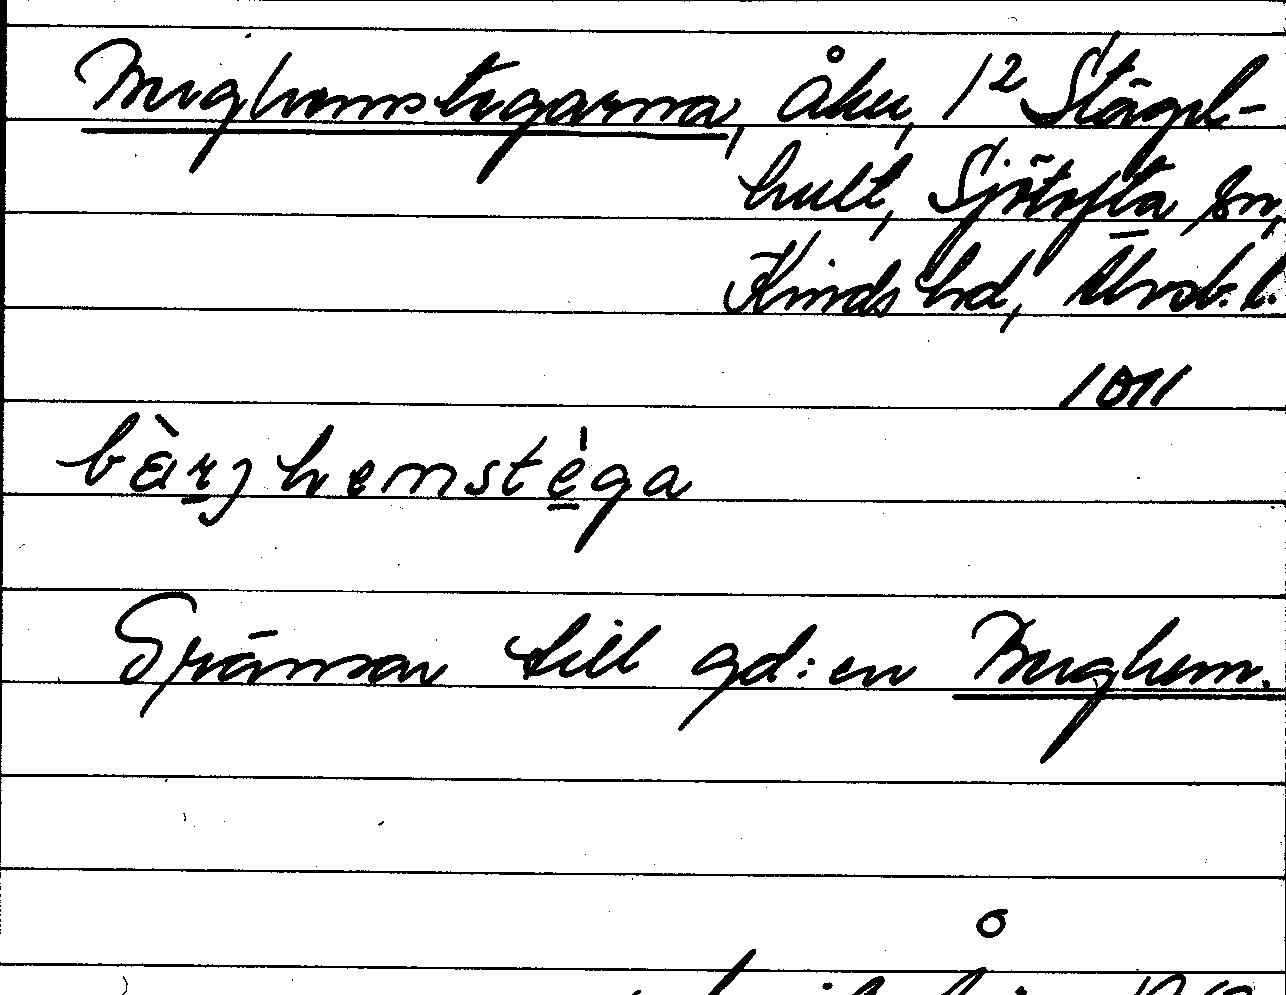 Berghemstegarna, Åker, 1² Stägel-
hult, Sjötofta sn,
Kinds hd, Älvsb. l.
1011
bàrjhemstega
Gränsar till gd:en Berghem.